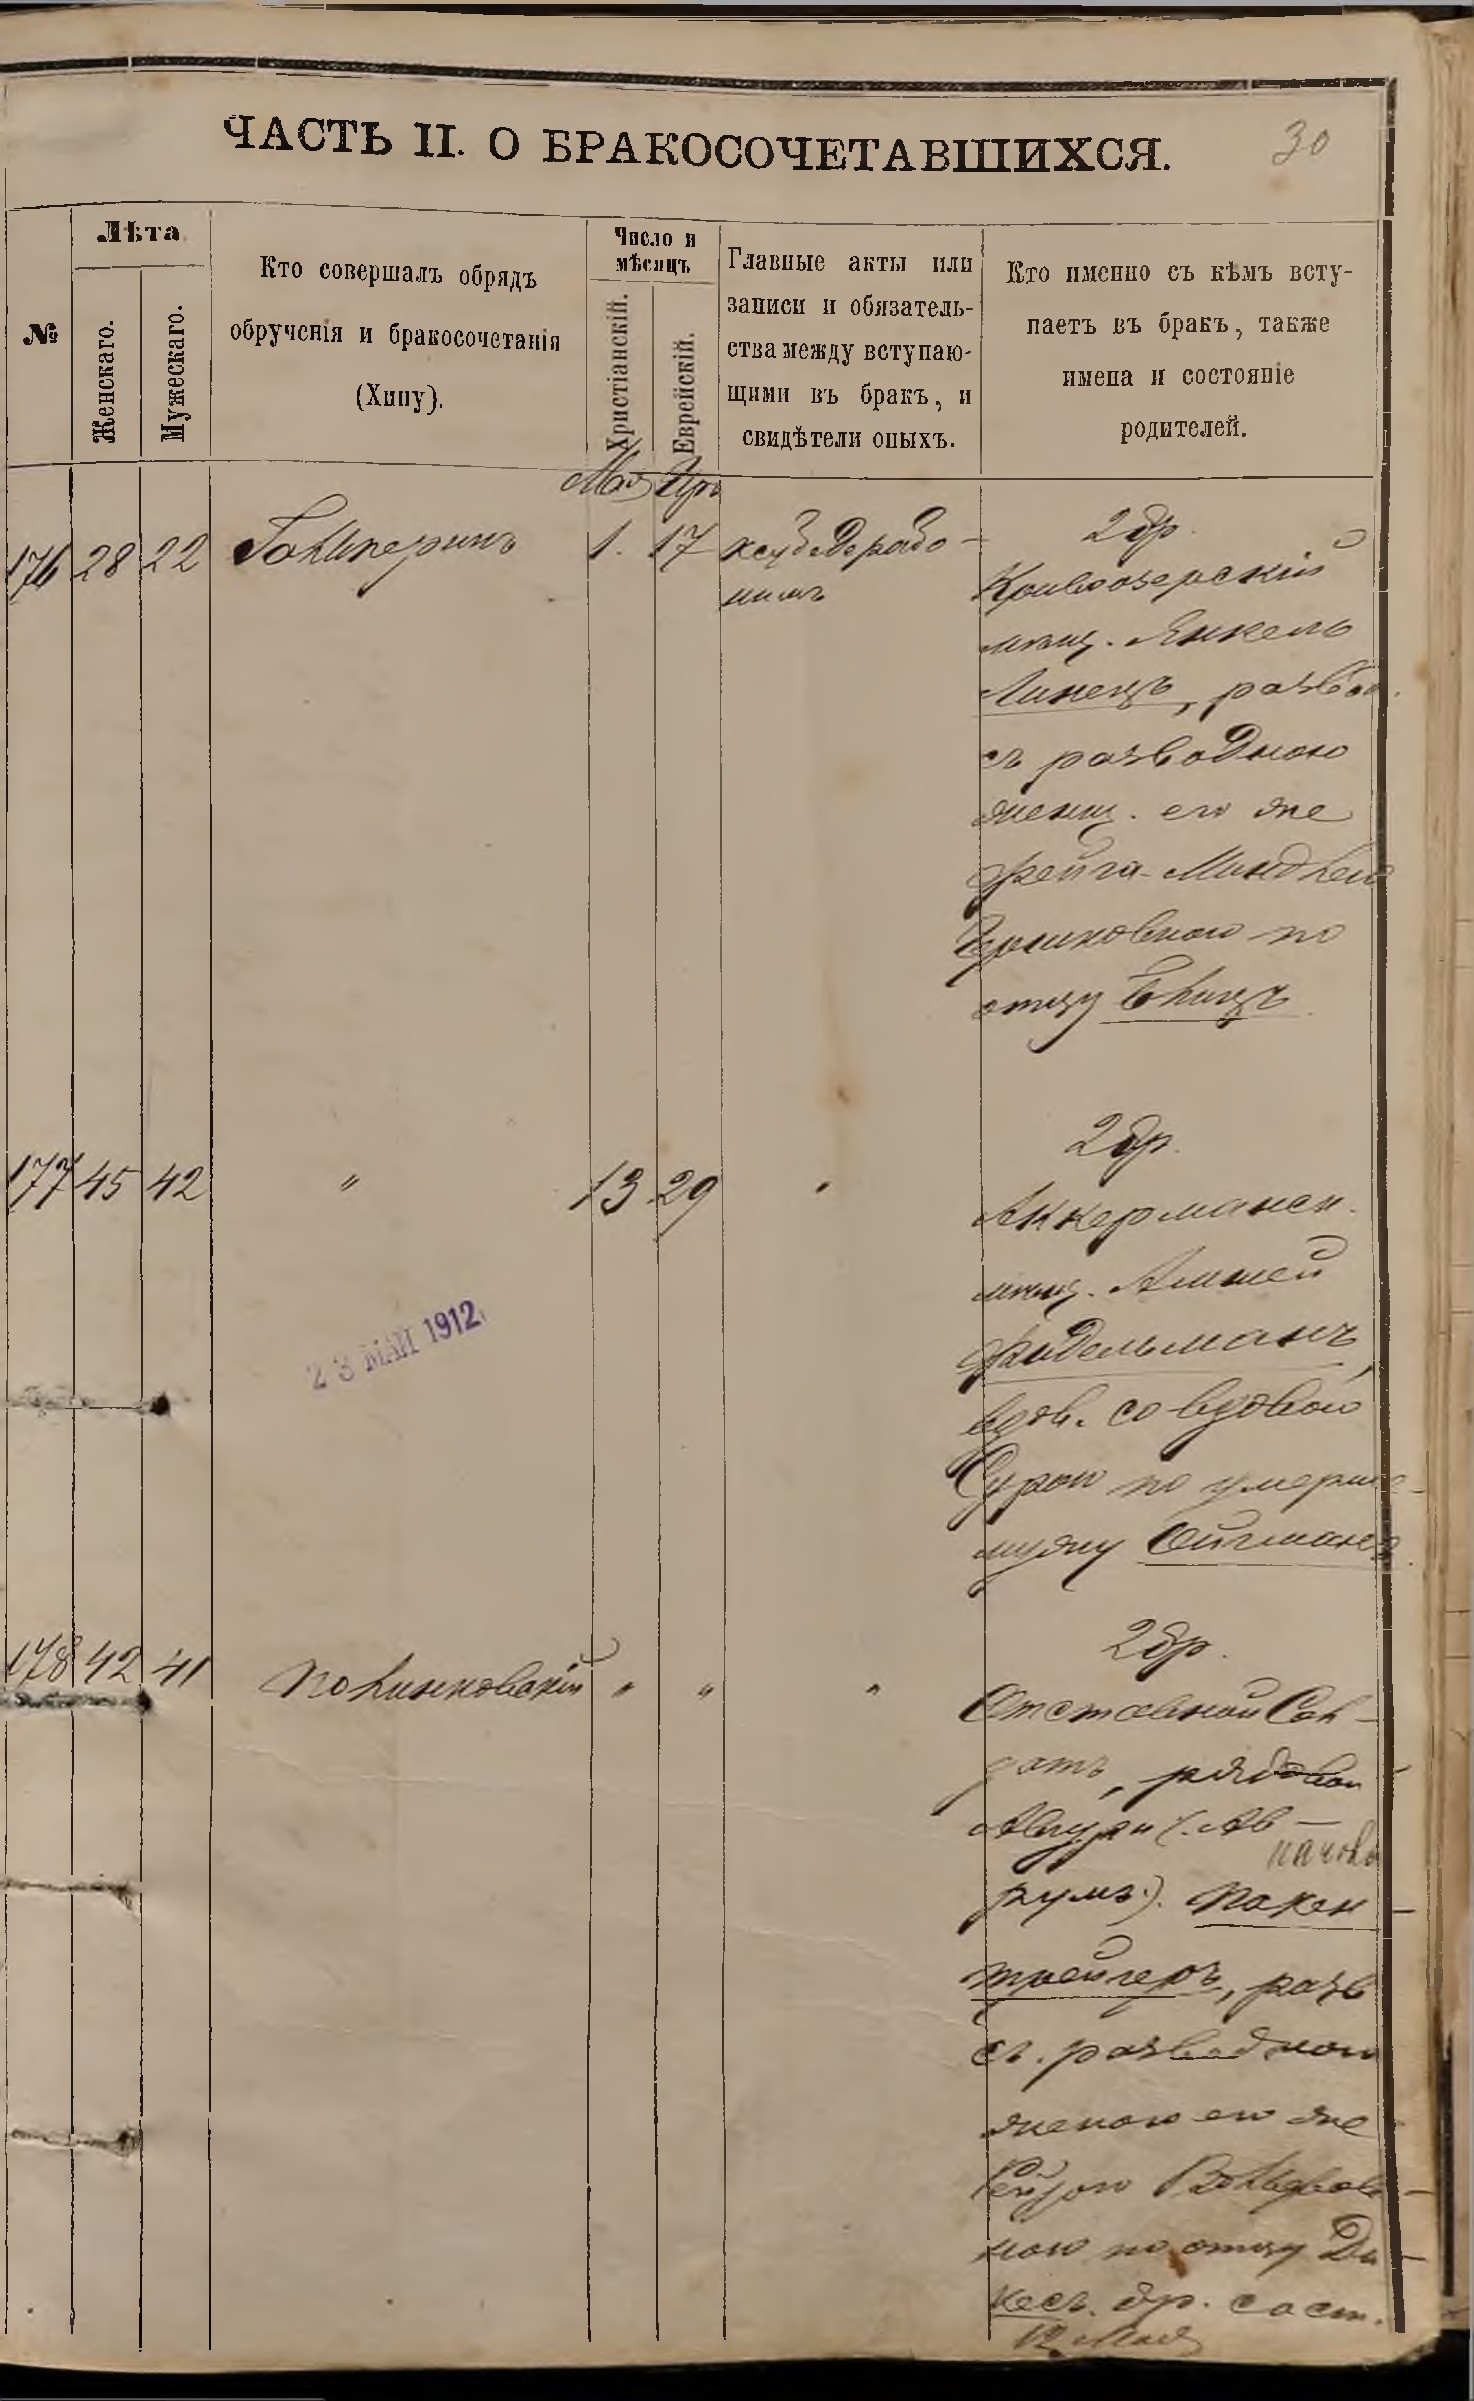 ЧАСТЬ II. О БРАКОСОЧЕТАВШИХСЯ.
30
№
Лѣта
Женскаго.
Мужескаго.
Кто совершалъ обрядъ
обрученія и бракосочетанія
(Хипу).
Число и
мѣсяцъ
Христіанскій.
Еврейскій.
Главные акты или
записи и обязатель-
ства между вступаю-
щими въ бракъ, и
свидѣтели оныхъ.
Кто именно съ кѣмъ всту-
паетъ въ бракъ, также
имена и состояніе
родителей.
Мая Іяръ
176 28 22 Гальперинъ 1. 17
2 бр.
Кривоозерскій
мѣщ. Янкель
Линецъ, развод.
съ разводною
женщ. его же
Фейга-Миндлею
по
отцу
177 45 42 " 13 29 "
2 бр.
Аккерманск.
мѣщ. Амшей
Фидельманъ,
вдов. со вдовой
Сурою по умерше-
му мужу
23 МАЙ 1912
178 42 41 Полинковскій " " "
2 бр.
Отставной Сол-
датъ, рядовой
Аврум (Ав-
румъ). Покен-
трейгеръ, разв
съ. разводною
женою его же
Рейзою Вольфов-
ною по отцу Ди-
кесъ. бр. сост.
13 Мая